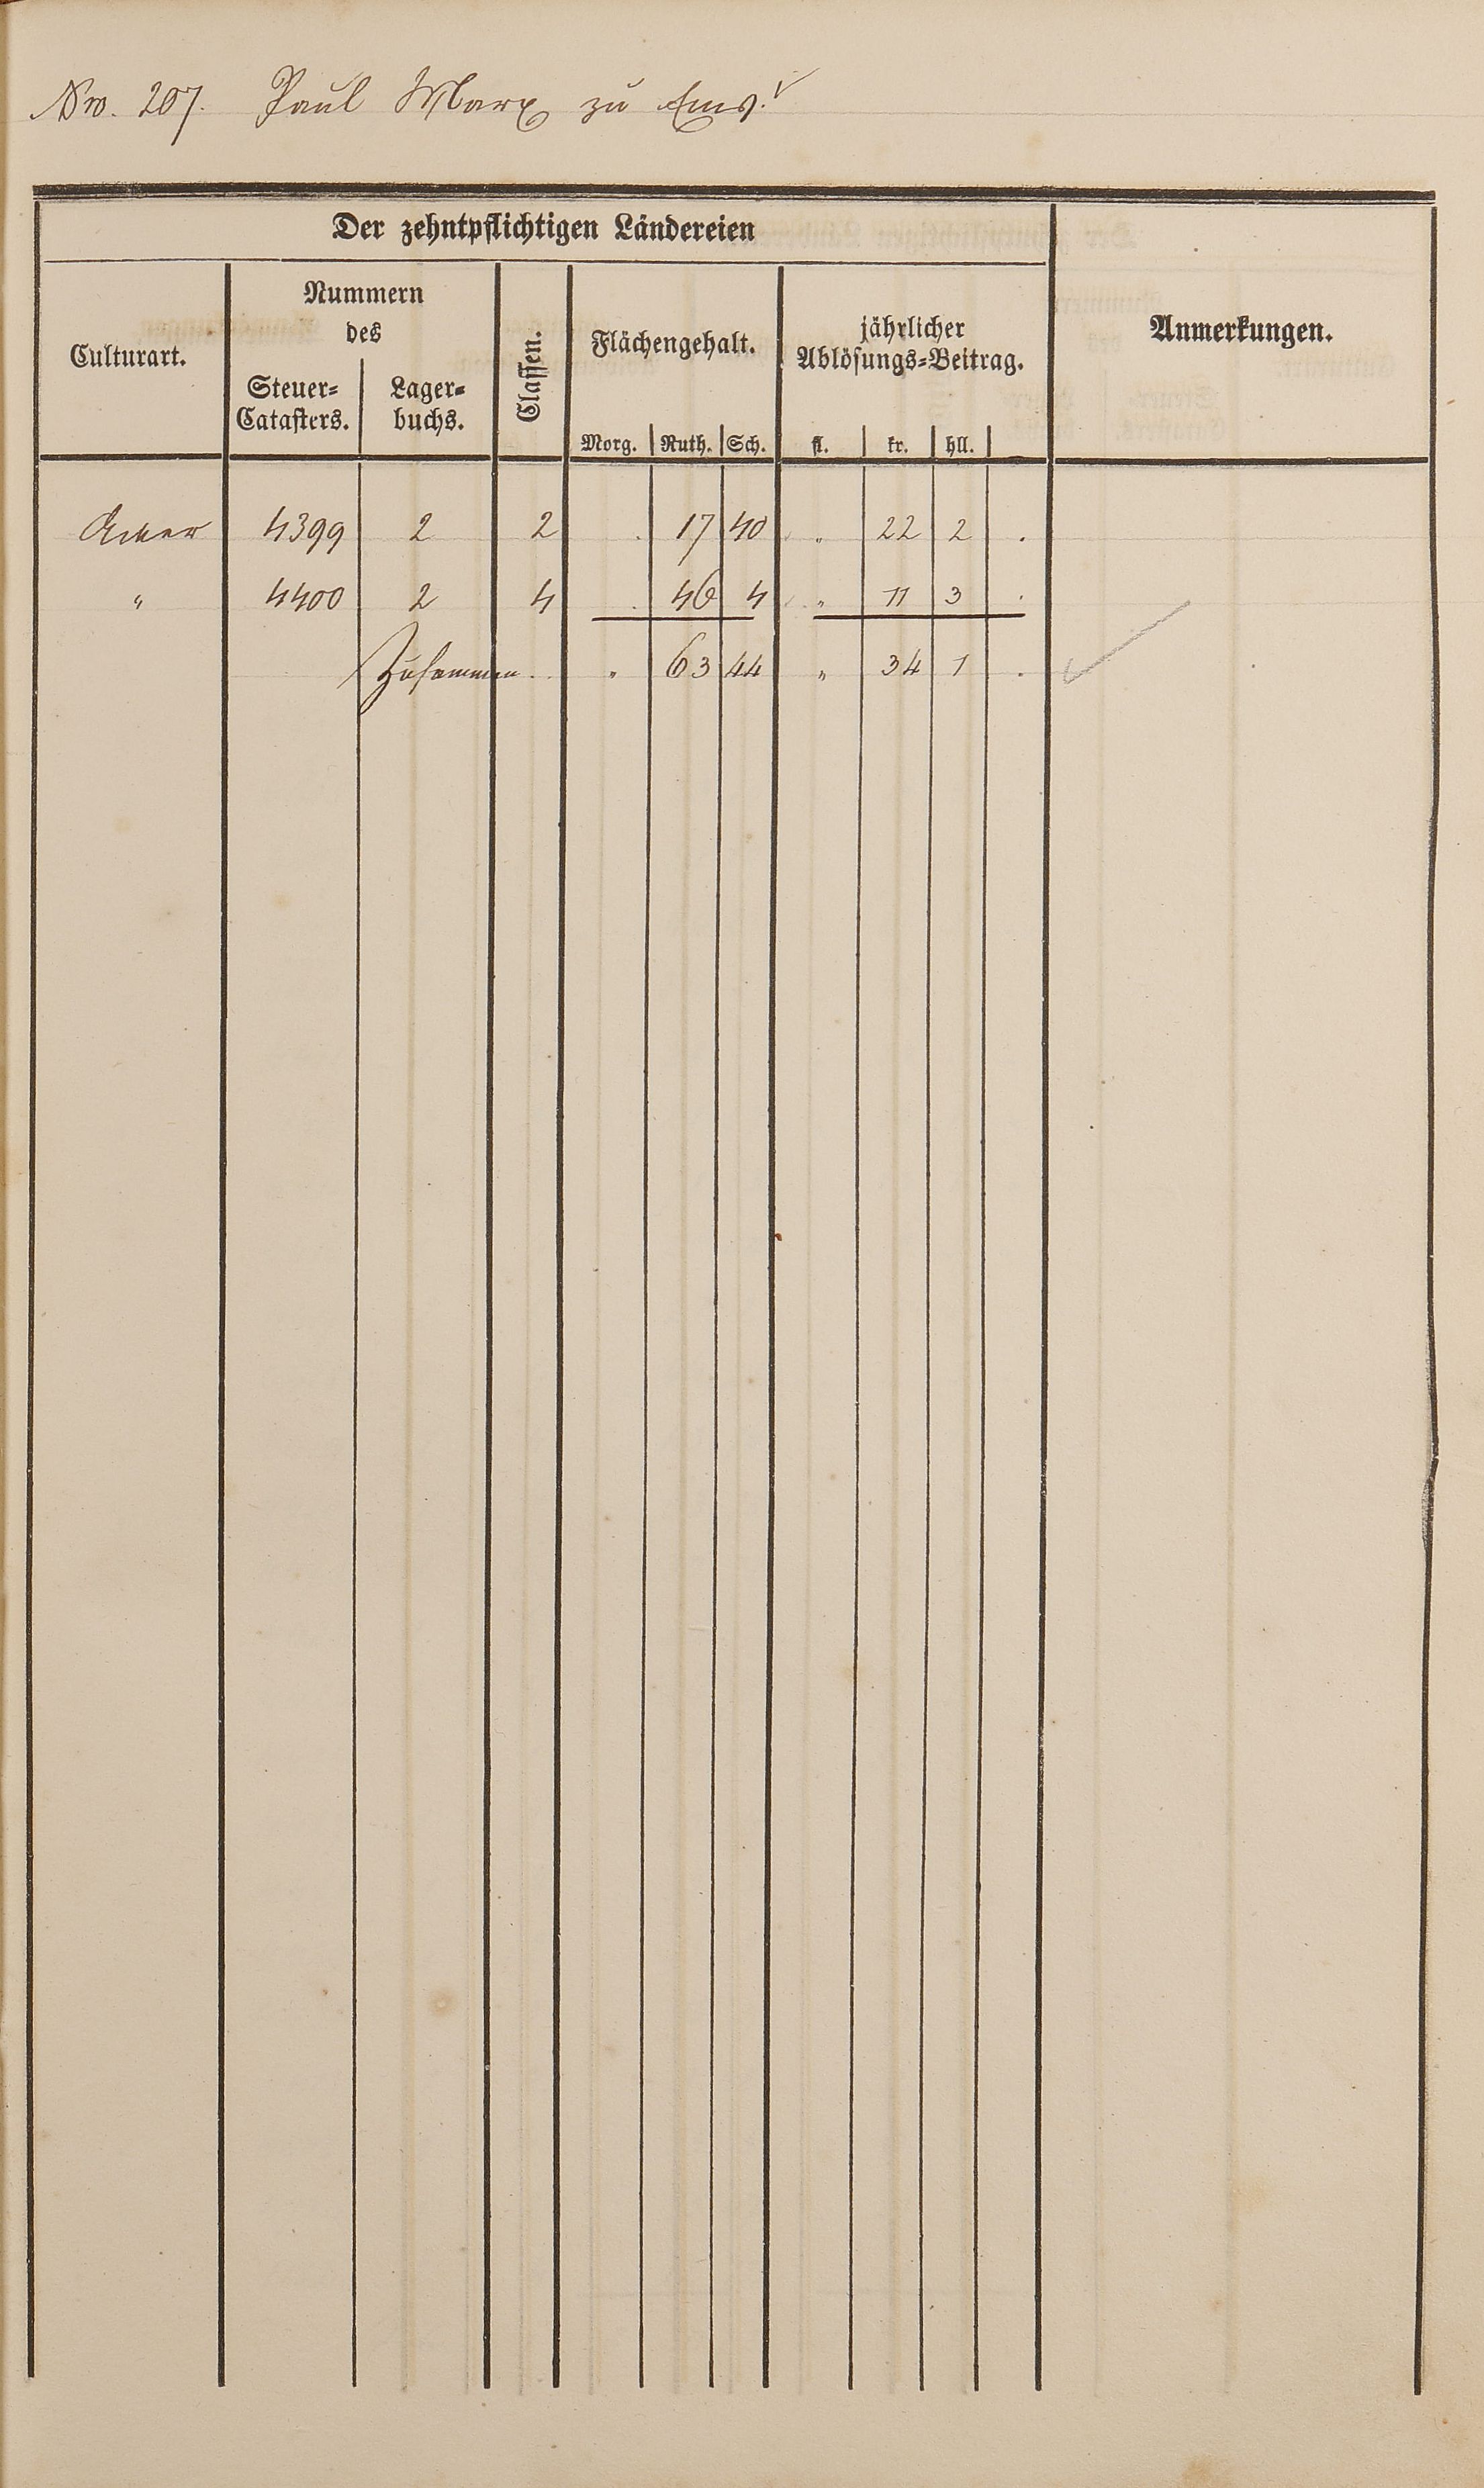 Nro. 207. Paul Marx zu Ems.
Der zehntpflichtigen Ländereien
Culturart.
Nummern
des
Steuer-
Catasters.
Lager-
buchs.
Classen.
Flächengehalt.
Morg. Ruth. Sch.
jährlicher
Ablösungs-Beitrag.
fl. kr. hll.
Anmerkungen.
Acker 4399 2 2 . 17 40 " 22 2 .
" 4400 2 4 . 46 4 " 11 3 .
Zusammen . " 63 44 " 34 1 .